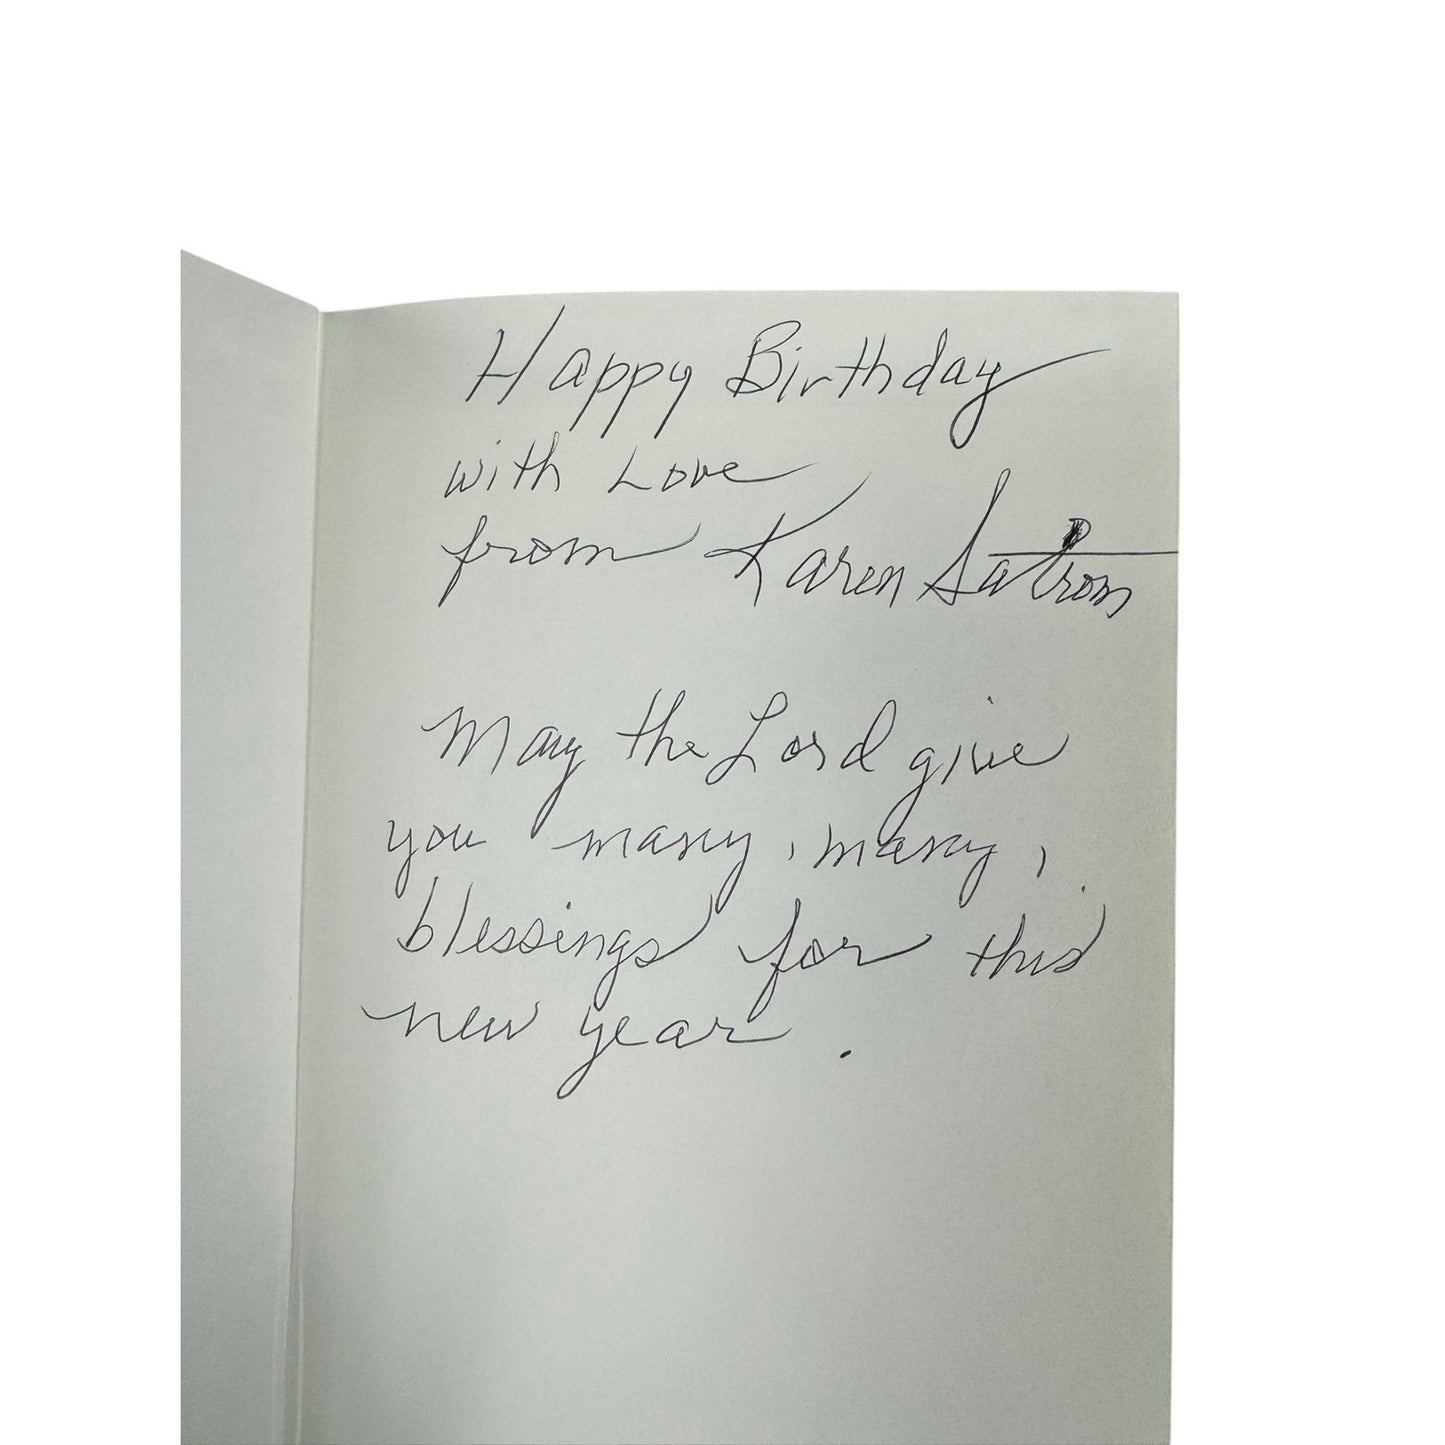 Happy Birthday
with Love
from Karen Satrom
May the Lord give
you many, many,
blessings for this
new year.